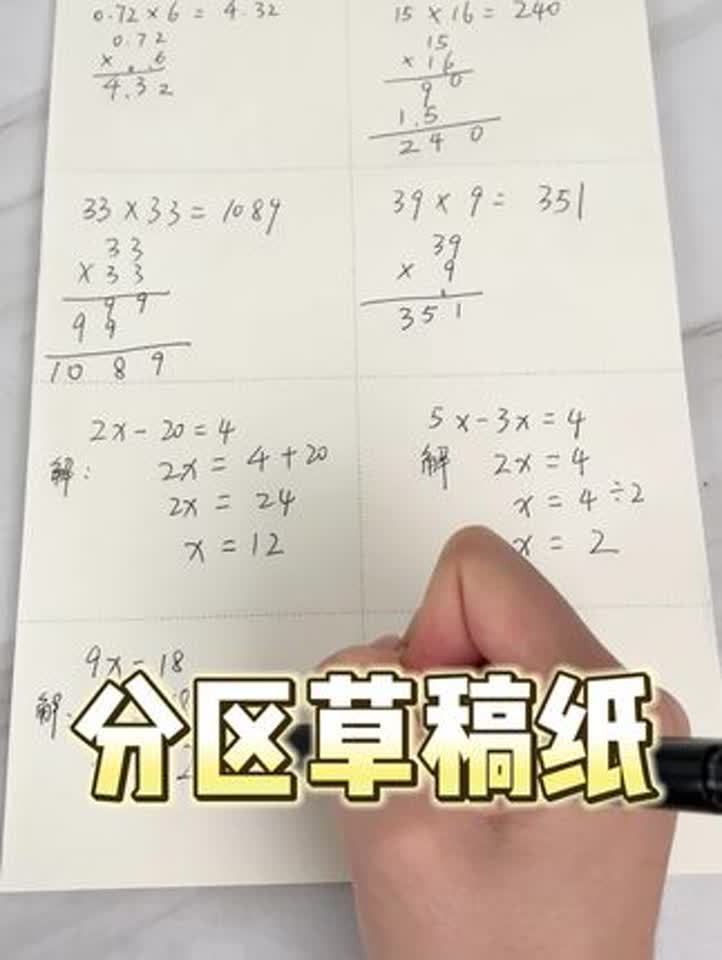 0.72 × 6 = 4.32
0.72
× 6
4.32
15 × 16 = 240
15
× 16
9 0
1.5
2 4 0
33 × 33 = 1089
33
× 33
9 9
9 9
10 8 9
39 × 9 = 351
39
× 9
351
2x - 20 = 4
解: 2x = 4 + 20
2x = 24
x = 12
5x - 3x = 4
解 2x = 4
x = 4 ÷ 2
x = 2
9x - 18
解:
2
分区草稿纸